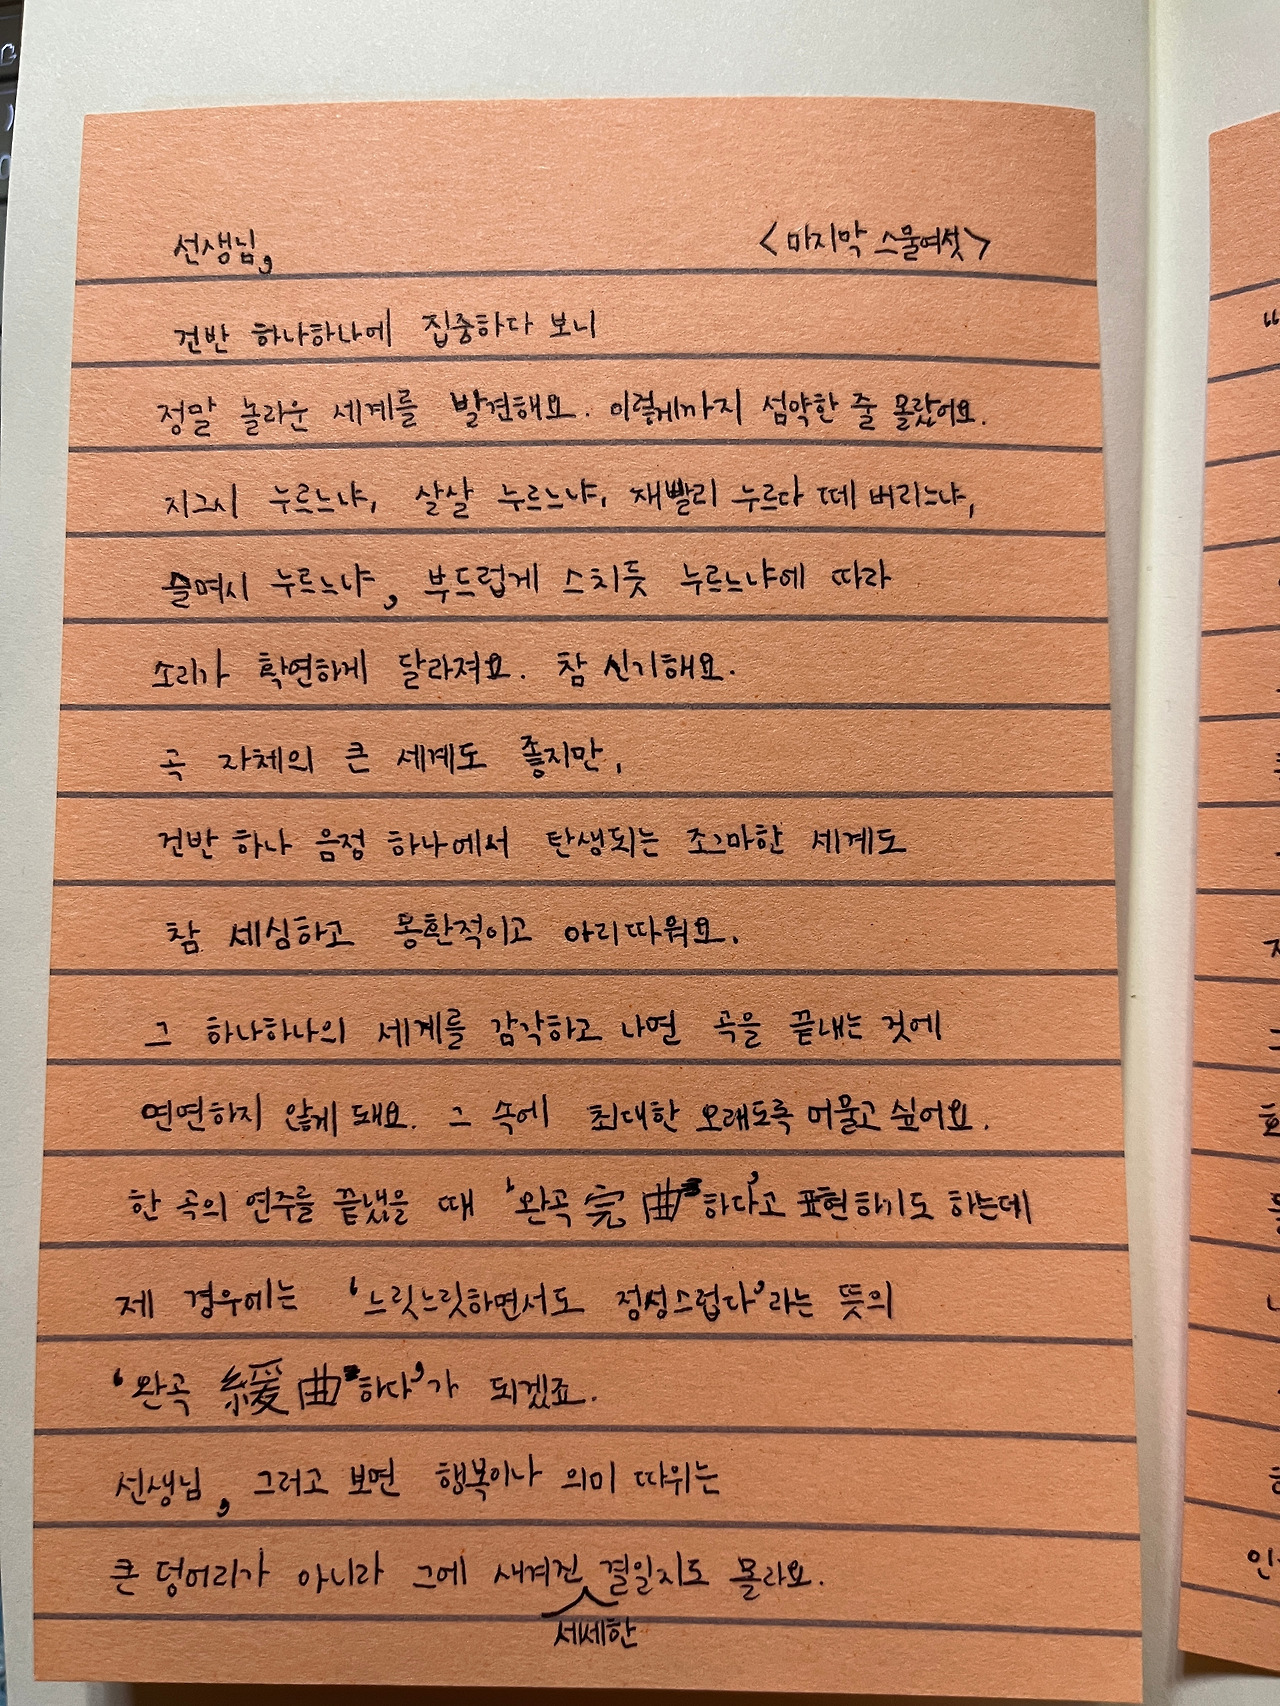 선생님, <마지막 스물여섯>
건반 하나하나에 집중하다 보니
정말 놀라운 세계를 발견해요. 이렇게까지 섬약한 줄 몰랐어요.
지그시 누르느냐, 살살 누르느냐, 재빨리 누르다 떼 버리느냐,
슬며시 누르느냐, 부드럽게 스치듯 누르느냐에 따라
소리가 확연하게 달라져요. 참 신기해요.
곡 자체의 큰 세계도 좋지만,
건반 하나 음정 하나에서 탄생되는 조그마한 세계도
참 세심하고 몽환적이고 아리따워요.
그 하나하나의 세계를 감각하고 나면 곡을 끝내는 것에
연연하지 않게 돼요. 그 속에 최대한 오래도록 머물고 싶어요.
한 곡의 연주를 끝냈을 때 '완곡 完曲하다'고 표현하기도 하는데
제 경우에는 '느릿느릿하면서도 정성스럽다'라는 뜻의
'완곡 緩曲하다'가 되겠죠.
선생님, 그러고 보면 행복이나 의미 따위는
큰 덩어리가 아니라 그에 새겨진 세세한 결일지도 몰라요.